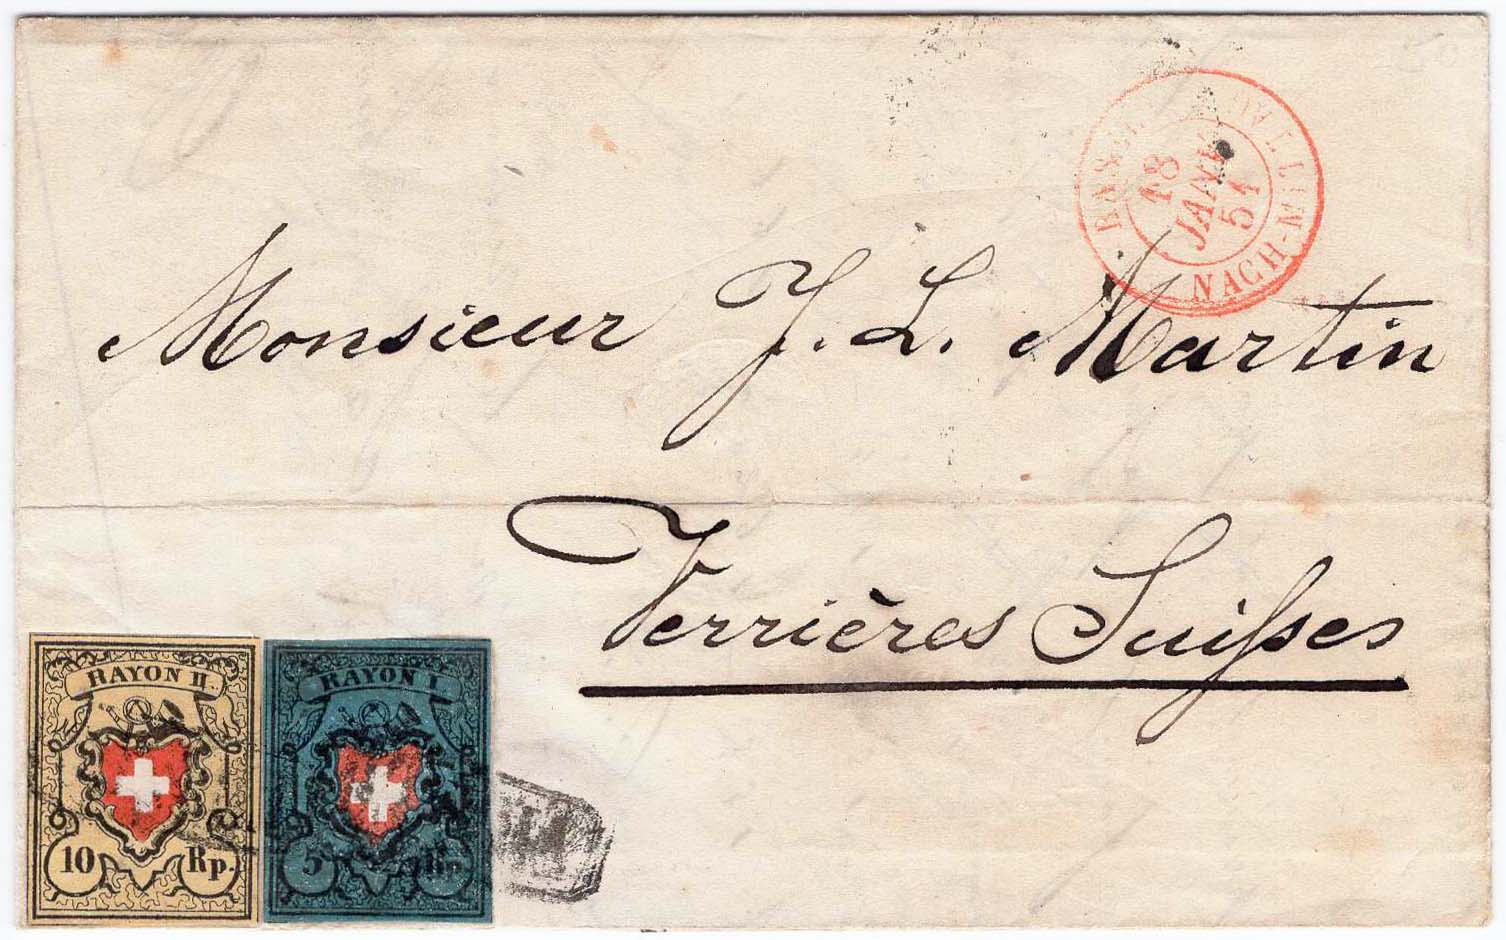 18
JANV
51
NACH-MITTAG
Monsieur J. L. Martin
Verrières Suiſses
RAYON II.
10 Rp.
RAYON I
5 Rp.